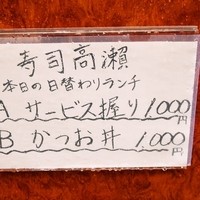 寿司高瀬
本日の日替わりランチ
A サービス握り 1,000円
B かつお丼 1,000円